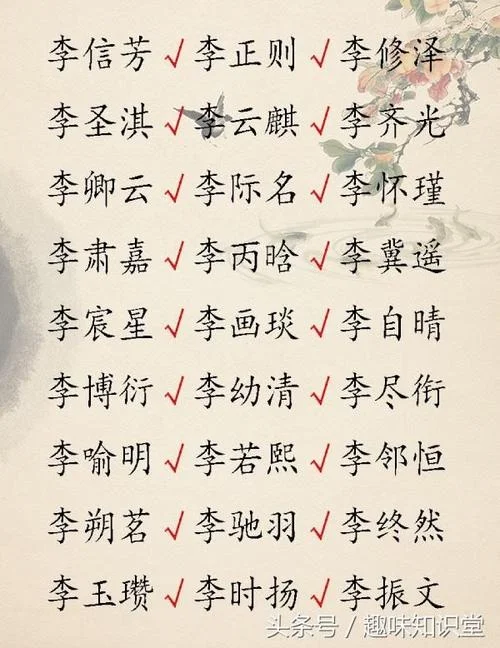 李信芳√李正则√李修泽
李圣淇√李云麒√李齐光
李卿云√李际名√李怀瑾
李肃嘉√李丙晗√李冀遥
李宸星√李画琰√李自晴
李博衍√李幼清√李尽衔
李喻明√李若熙√李邻恒
李朔茗√李驰羽√李终然
李玉瓒√李时扬√李振文
头条号/趣味知识堂